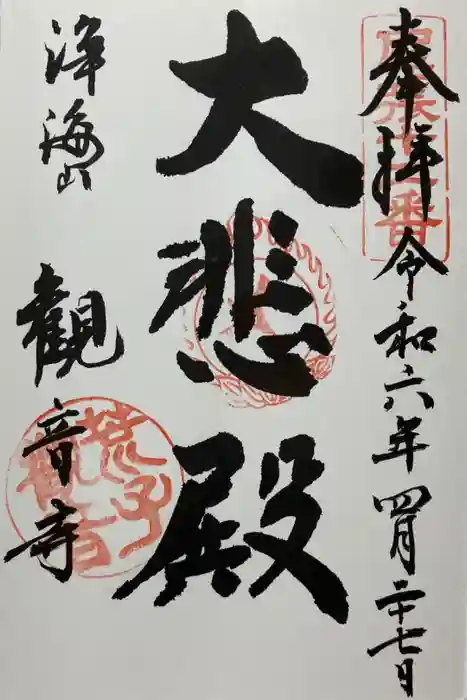 奉拝
令和六年四月二十七日
大悲殿
浄海山
觀音寺
荒子
観音